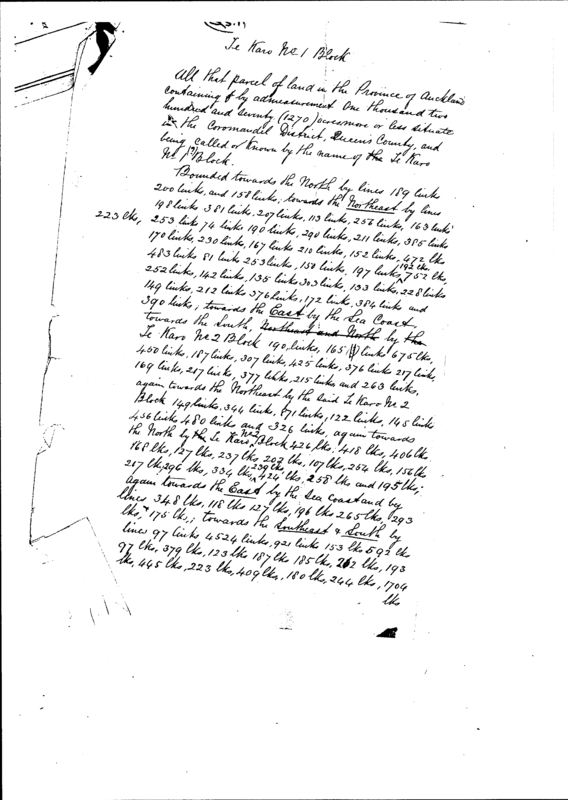 Te Karo No 1 Block
All that parcel of land in the Province of Auckland
containing by admeasurement One thousand two
hundred and seventy (1270) acres more or less situate
in the Coromandel District, Queen's County, and
being called or known by the name of the Te Karo
No 1 Block.
Bounded towards the North by lines 189 links
200 links, and 158 links, towards the Northeast by lines
198 links 381 links, 207 links, 113 links, 256 links, 163 links
223 lks, 253 links 74 links 190 links, 290 links, 211 links, 385 links
170 links, 230 links, 167 links 210 links, 152 links, 472 lks
483 links 81 links 253 links, 150 links, 197 links, 192 lks, 752 lks,
252 links, 142 links, 135 links 303 links, 133 links, 228 links
149 links, 212 links 376 links, 172 links, 384 links and
390 links; towards the East by the Sea Coast,
towards the South, Northeast and North by the
Te Karo No 2 Block 190 links, 165 links 675 lks,
450 links, 187 links, 307 links, 425 links, 376 links 217 links,
169 links, 217 links, 377 links, 215 links and 263 links,
again towards the Northeast by the said Te Karo No 2
Block 149 links, 344 links, 171 links, 122 links, 145 links
456 links 480 links and 326 links, again towards
the North by the Te Karo No 2 Block 426 lks, 418 lks, 406 lks
168 lks, 127 lks, 237 lks 202 lks, 107 lks, 254 lks, 156 lks
217 lks, 296 lks, 334 lks, 239 lks, 424 lks, 258 lks and 195 lks;
again towards the East by the Sea coast and by
lines 348 lks, 118 lks 127 lks, 196 lks 265 lks, 293
lks, 175 lks,; towards the Southeast & South by
lines 97 links 4524 links, 921 links 153 lks 592 lks
97 lks, 379 lks, 123 lks 187 lks 185 lks, 262 lks, 193
lks, 445 lks, 223 lks, 409 lks, 180 lks, 244 lks, 1704
lks